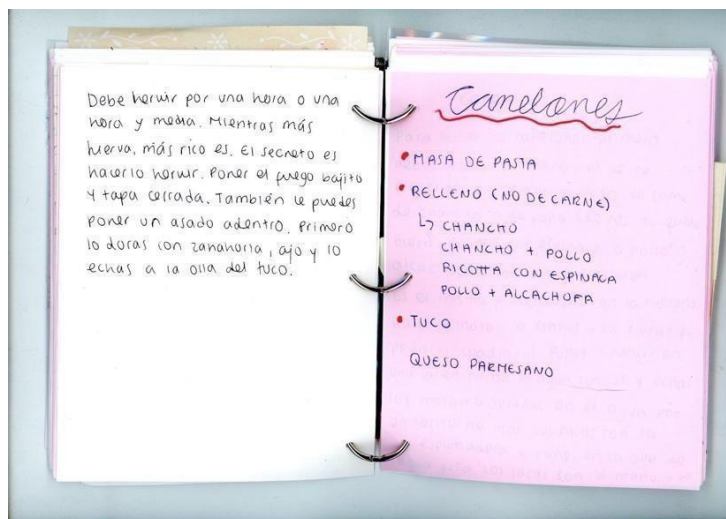 Debe hervir por una hora o una
hora y media. Mientras más
hierva, más rico es. El secreto es
hacerlo hervir. Poner el fuego bajito
y tapa cerrada. También le puedes
poner un asado adentro. Primero
lo doras con zanahoria, ajo y lo
echas a la olla del tuco.
Canelones
• MASA DE PASTA
• RELLENO (NO DE CARNE)
↳ CHANCHO
CHANCHO + POLLO
RICOTTA CON ESPINACA
POLLO + ALCACHOFA
• TUCO
QUESO PARMESANO